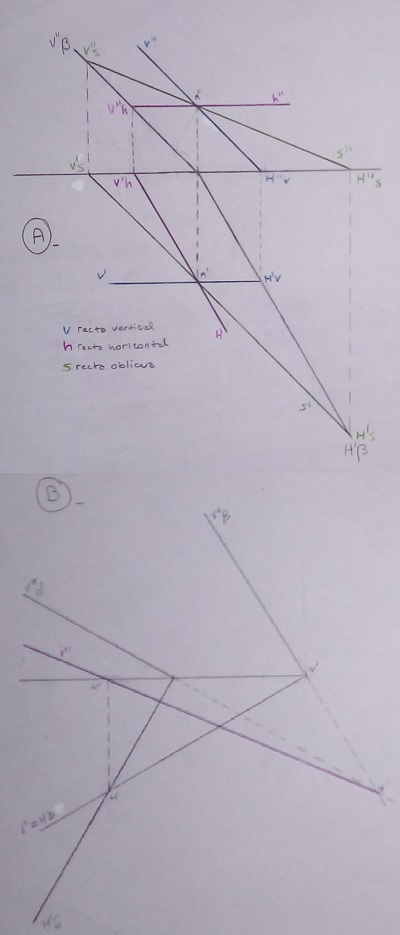 V''β V''s v''
V''h n'' h''
s''
V's V'h H''v H''s
A -
v' n' H'v
h'
v recta vertical
h recta horizontal
s recta oblicua
s' H's
H'β
B -
V''β
V''δ
i''
H'δ